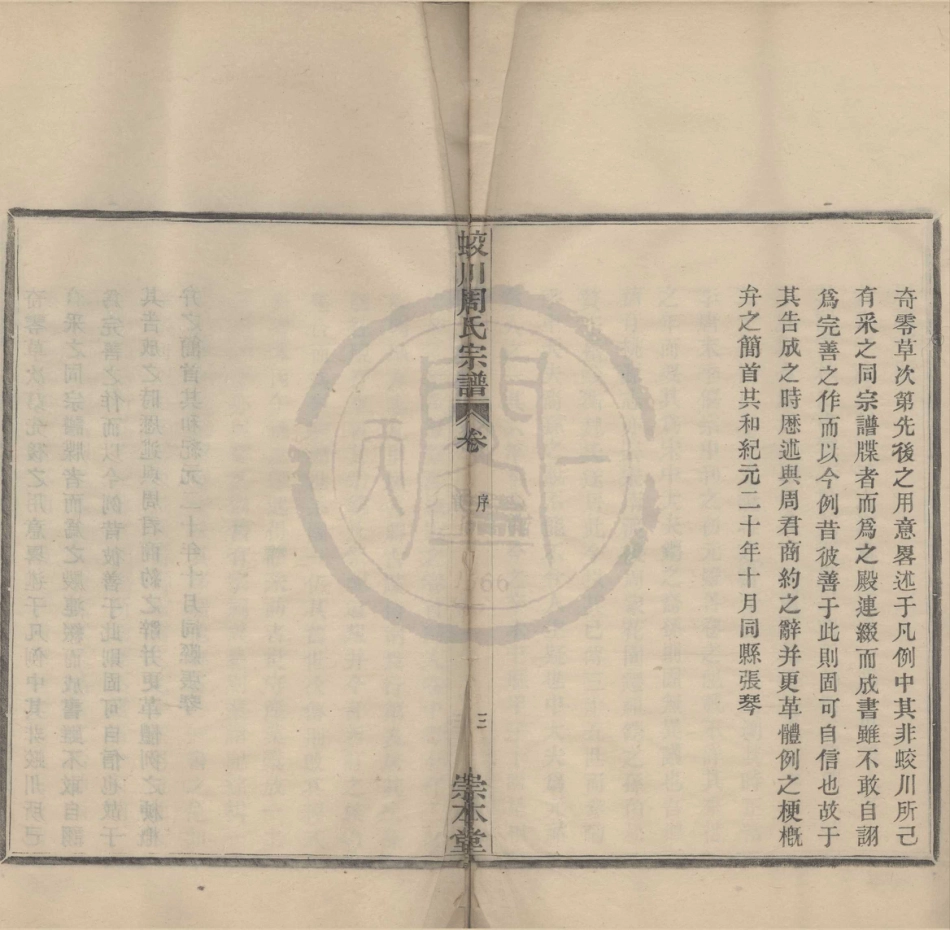 奇零草次第先後之用意畧述于凡例中其非蛟川所己
有采之同宗譜牒者而爲之殿連綴而成書雖不敢自詡
爲完善之作而以今例昔彼善于此則固可自信也故于
其告成之時歷述與周君商約之辭并更革體例之梗槪
弁之簡首其和紀元二十年十月同縣張琴
蛟川周氏宗譜
卷
序
三
崇本堂